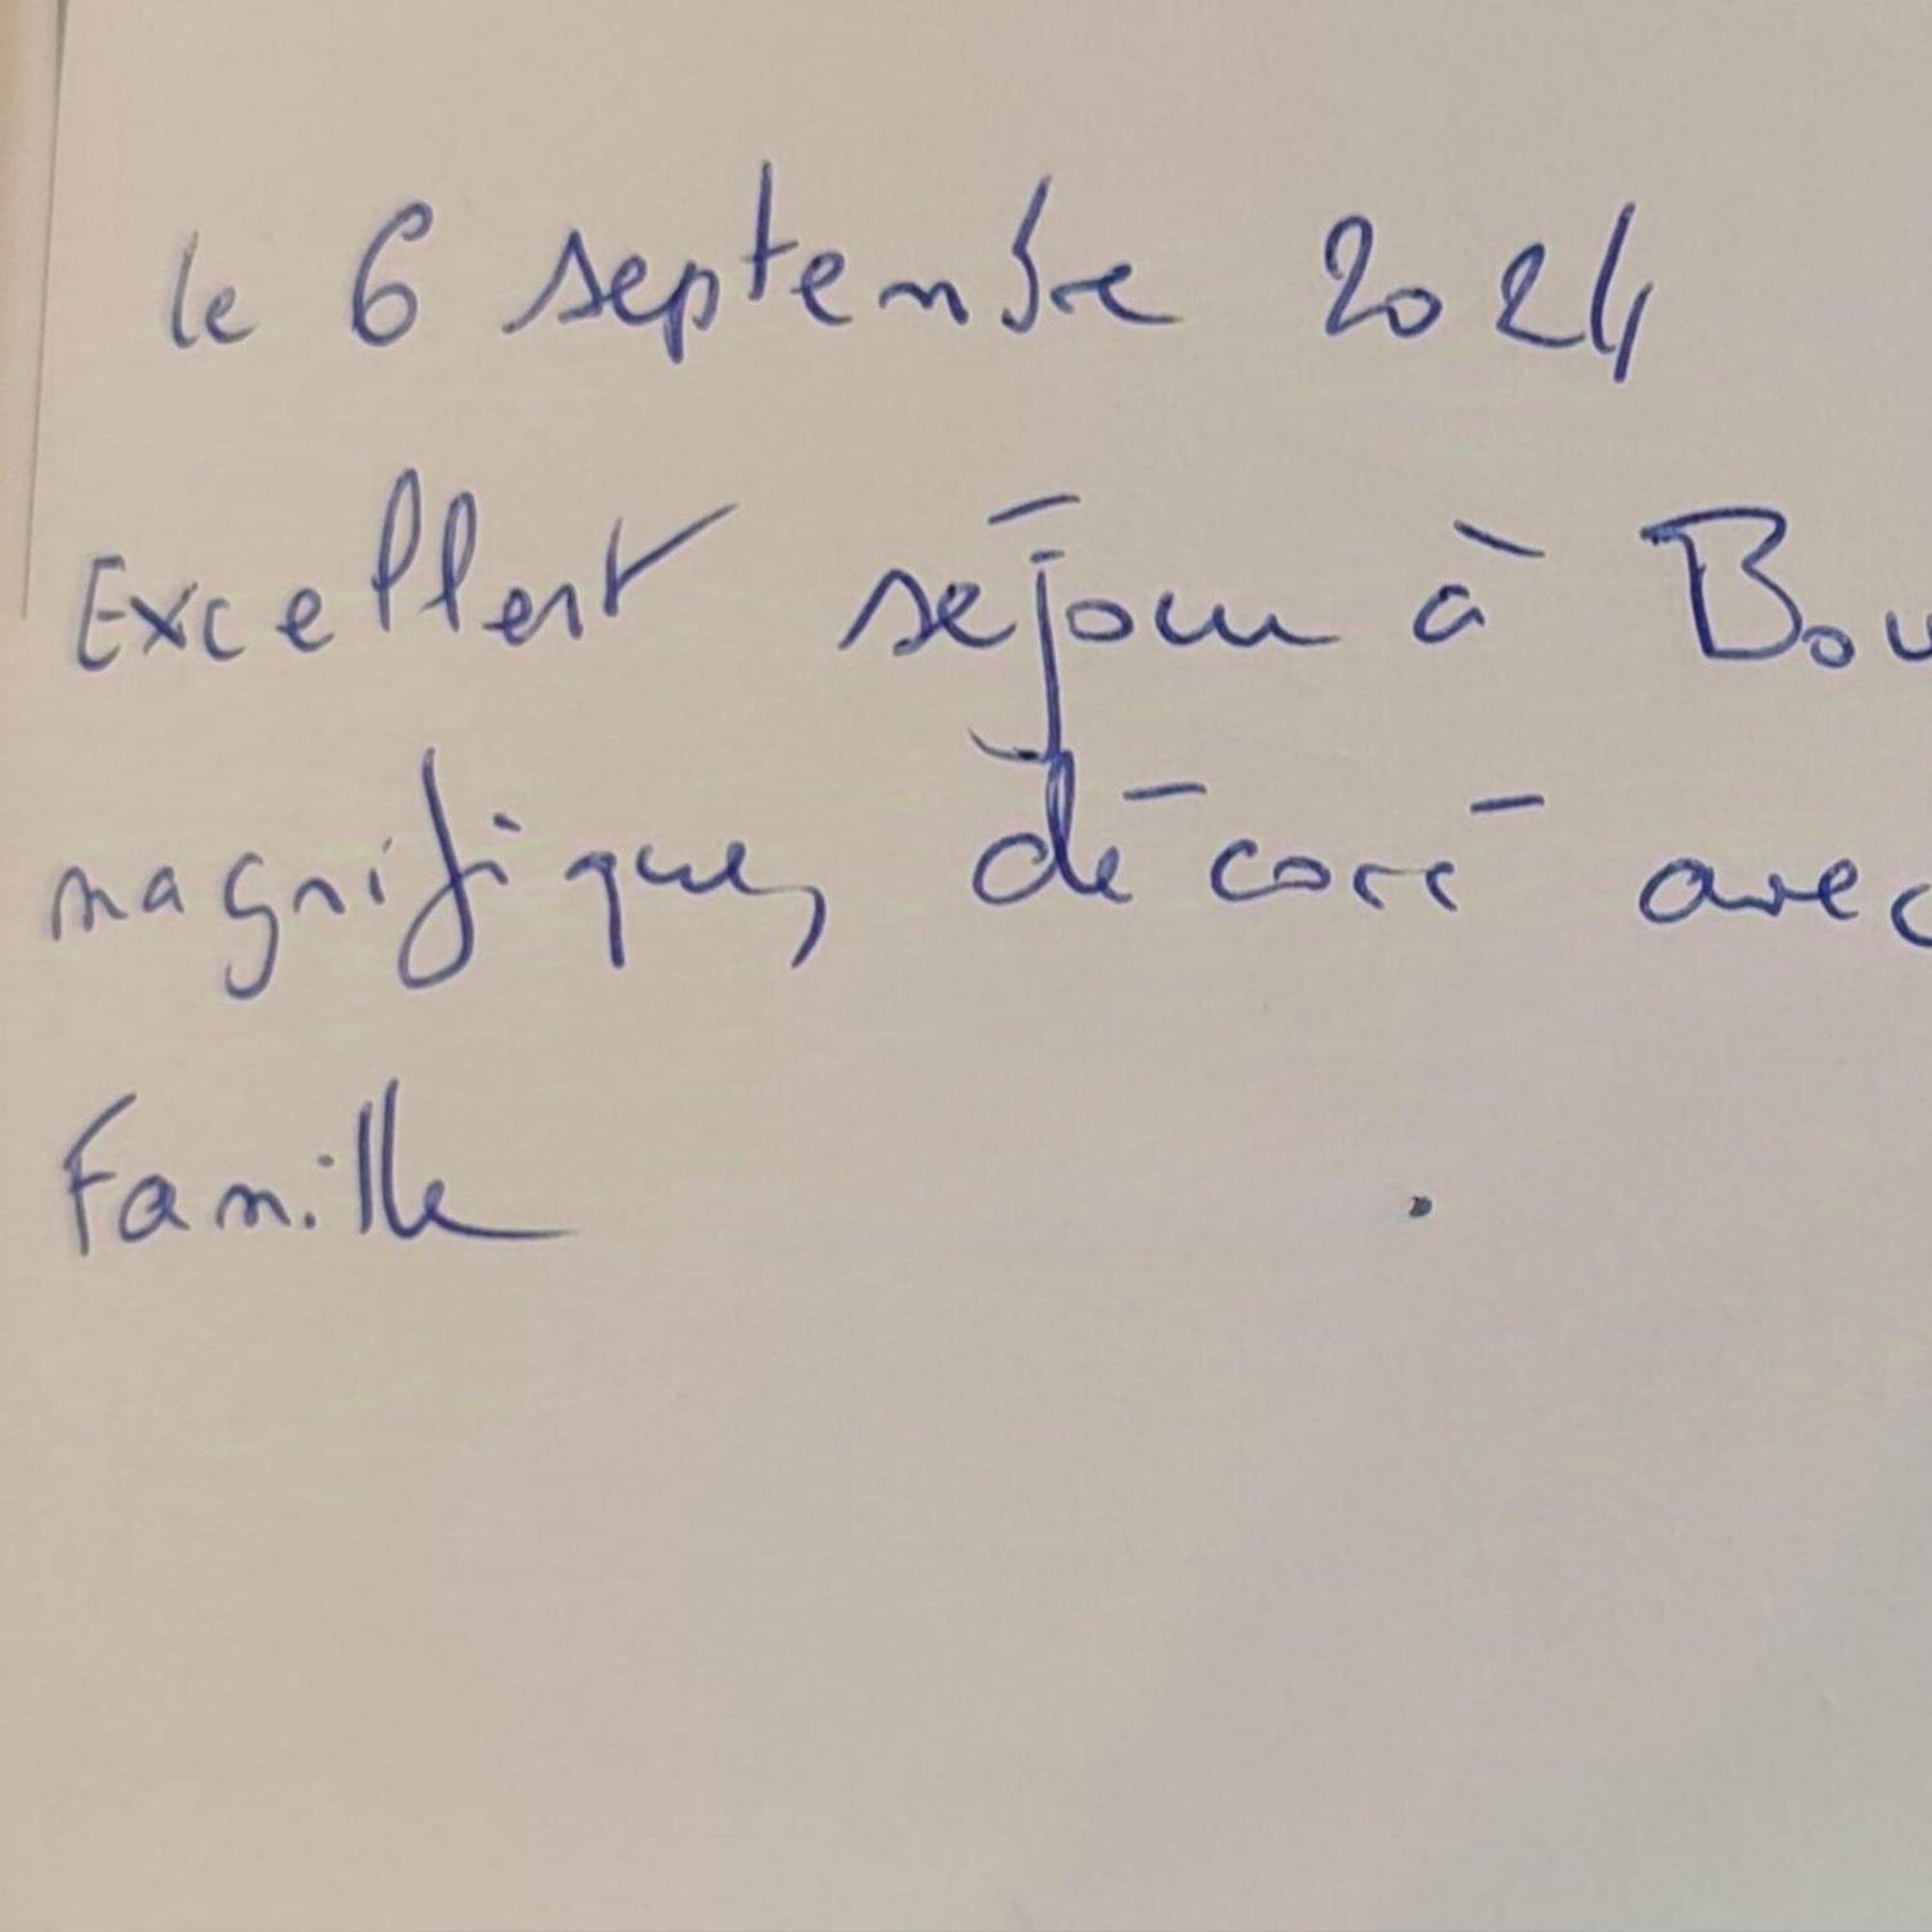 le 6 septembre 2024
Excellent séjour à Bou
magnifique, décoré avec
Famille